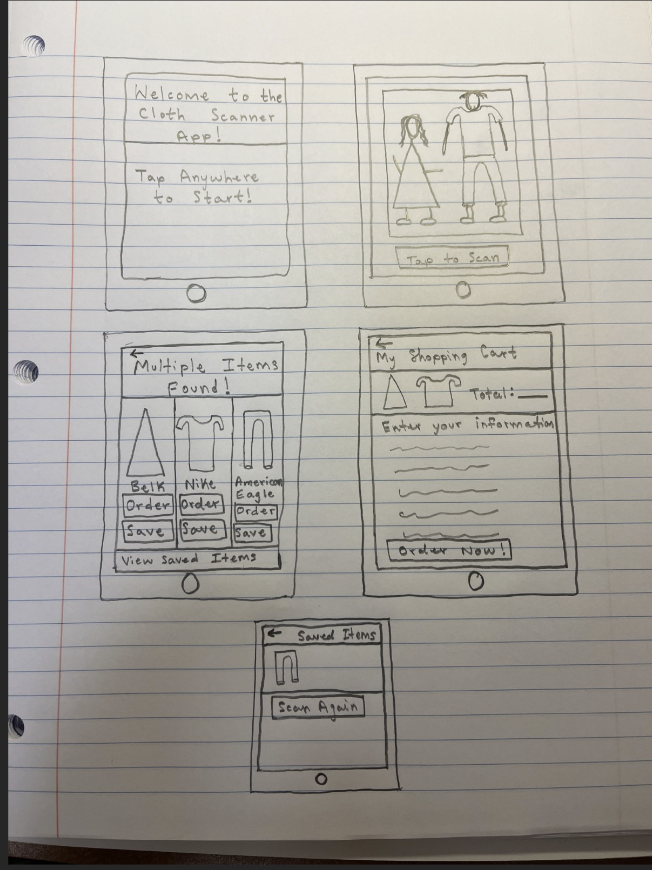 Welcome to the
Cloth Scanner
App!
Tap Anywhere
to Start!
Tap to Scan
←
Multiple Items
Found!
Belk
Order
Save
Nike
Order
Save
American
Eagle
Order
Save
View Saved Items
←
My Shopping Cart
Total:___
Enter your information
Order Now!
← Saved Items
Scan Again